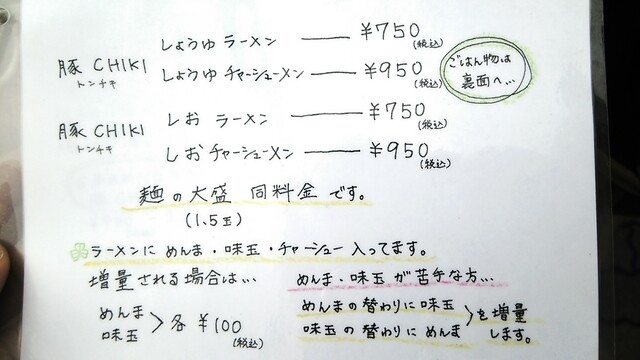 豚 CHIKI しょうゆ ラーメン ―― ¥750 (税込)
トンチキ しょうゆ チャーシューメン ―― ¥950 (税込)
ごはん物は
裏面へ…
豚 CHIKI しお ラーメン ―― ¥750 (税込)
トンチキ しおチャーシューメン ―― ¥950 (税込)
麺の大盛 同料金です。
(1.5玉)
ラーメンに めんま・味玉・チャーシュー 入ってます。
増量される場合は…
めんま
味玉 > 各 ¥100 (税込)
めんま・味玉が苦手な方…
めんまの替わりに味玉
味玉の替わりにめんま > を増量します。